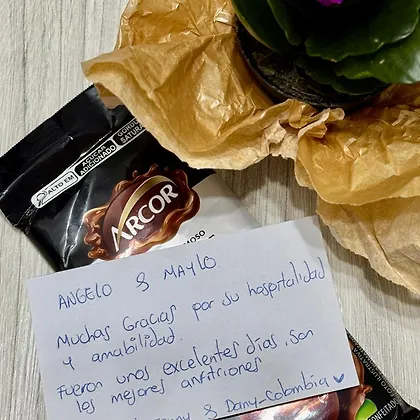 ALTO EM
AÇÚCAR
ADICIONADO
GORDURA
SATURADA
ARCOR
ANGELO & MAYLO
Muchas Gracias por su hospitalidad
y amabilidad.
Fueron unos excelentes días, son
los mejores anfitriones
& Dany-Colombia